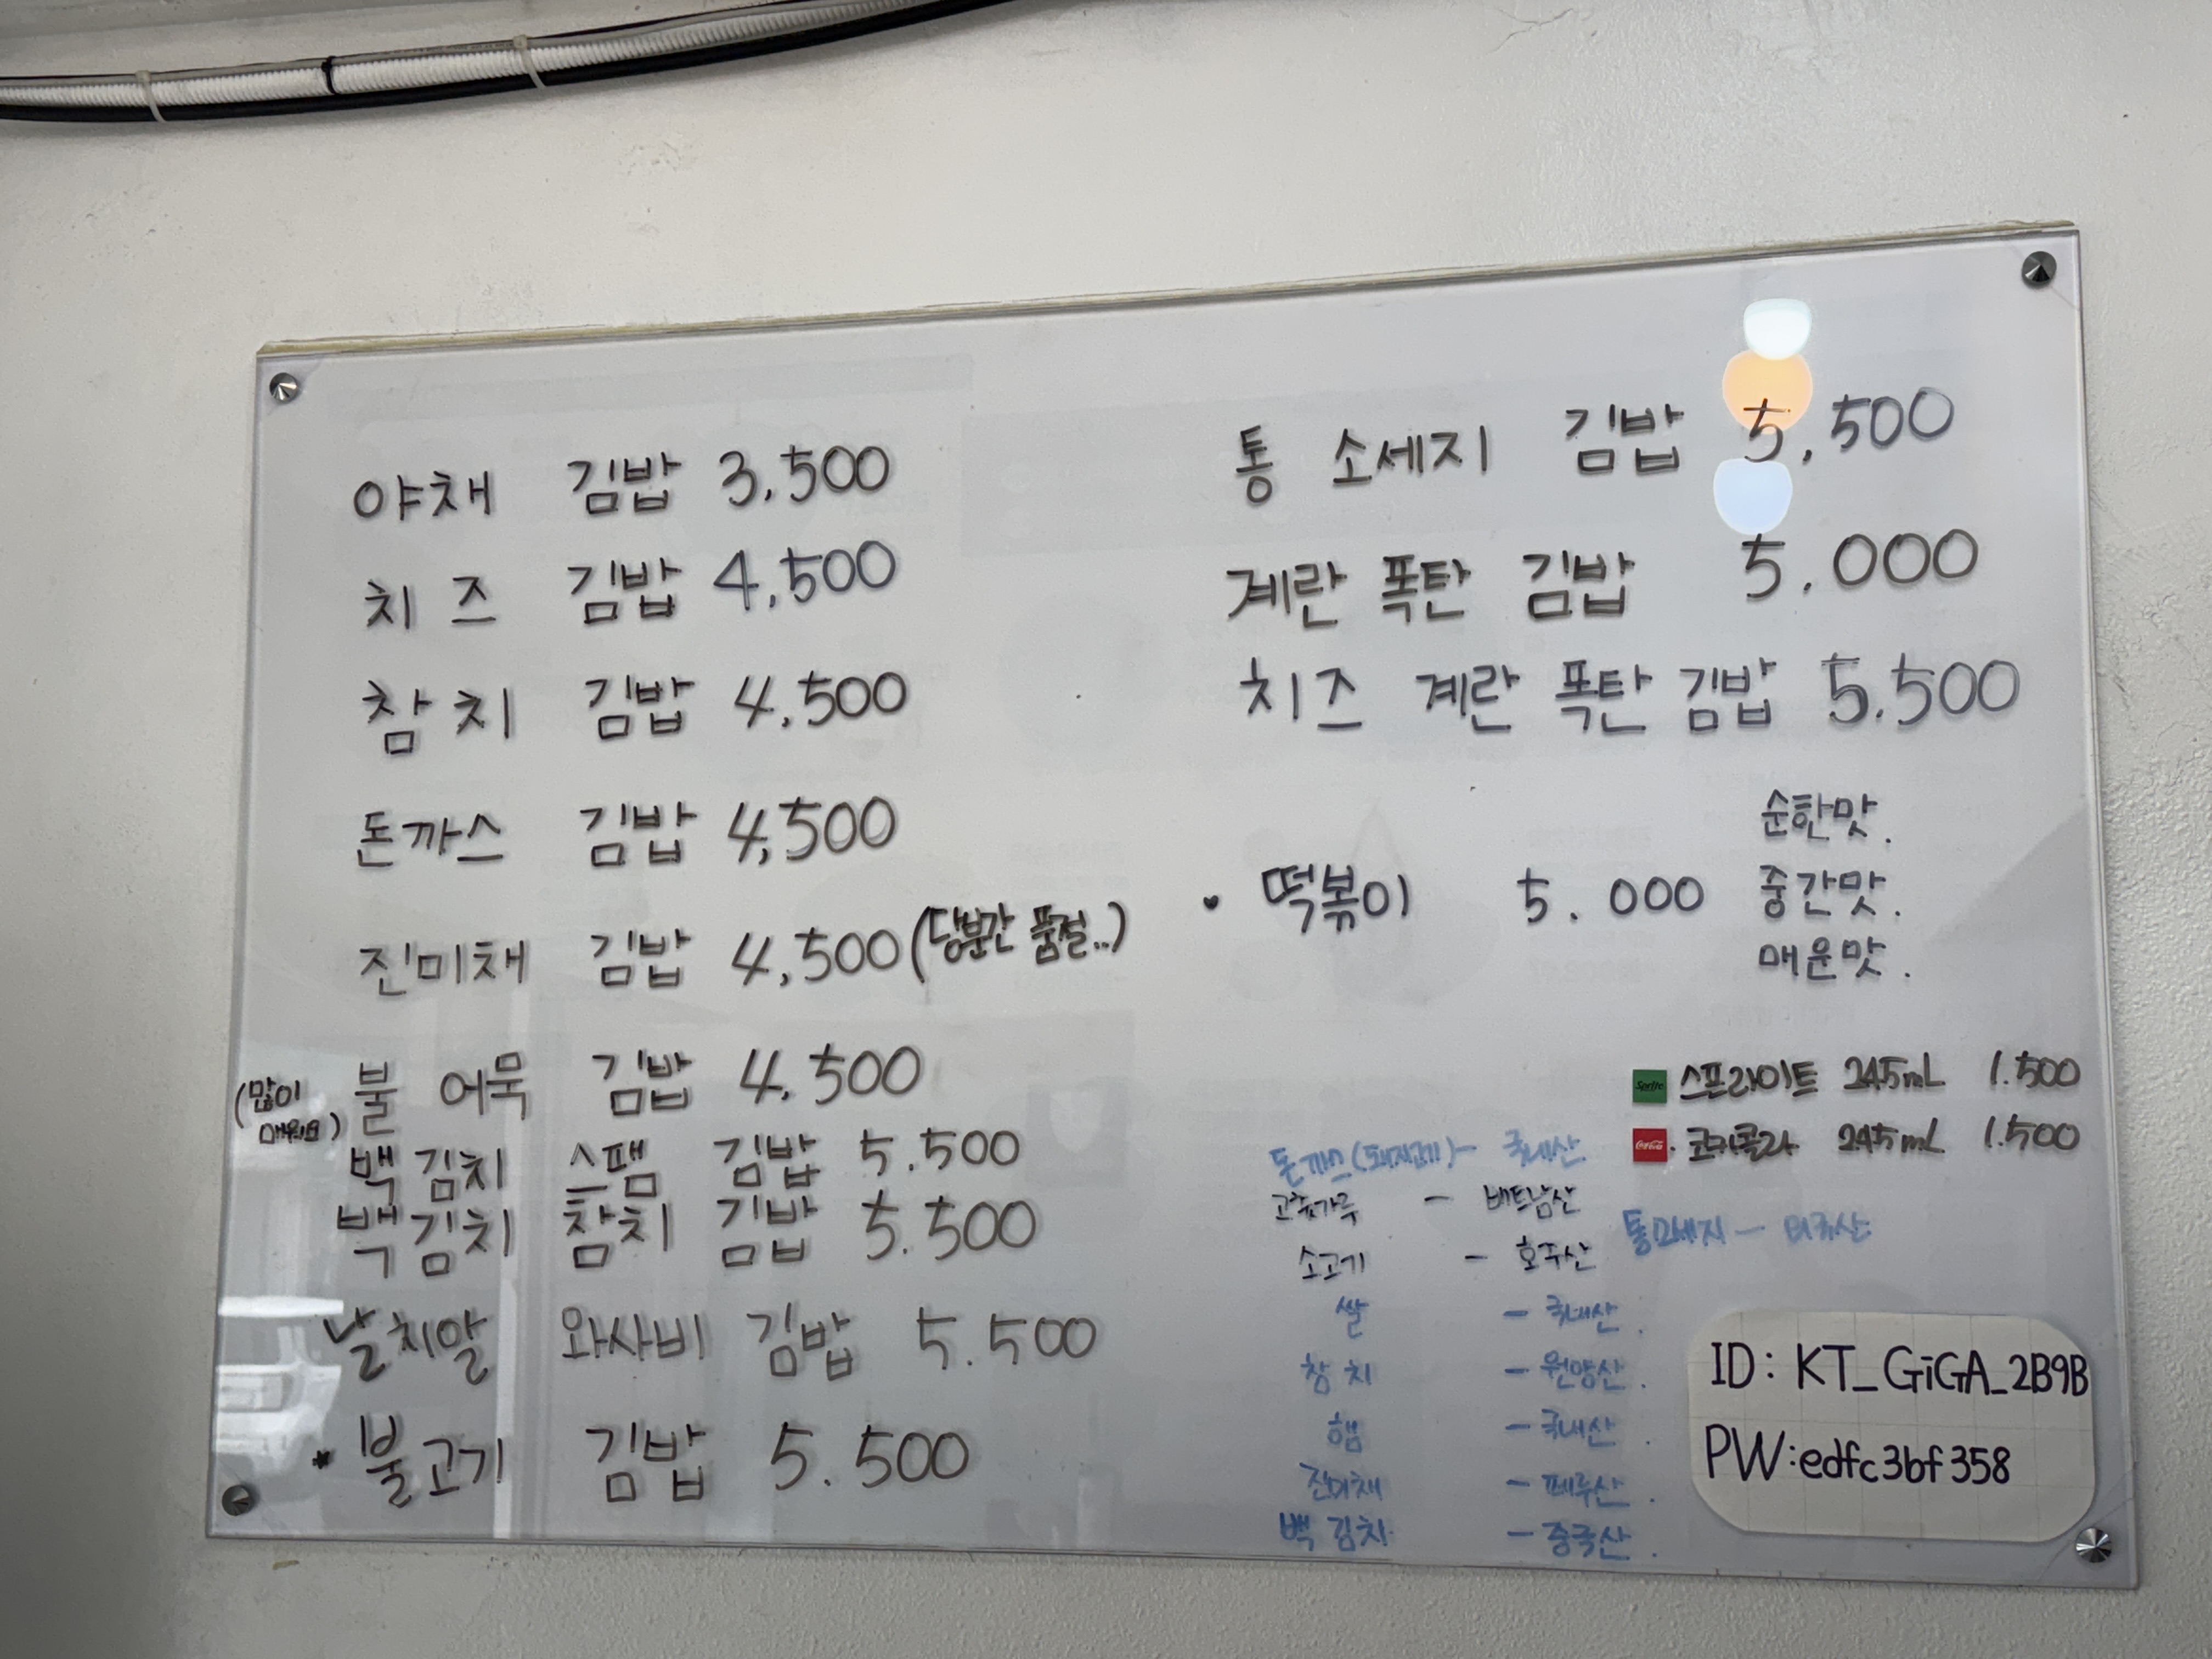 야채 김밥 3,500
치즈 김밥 4,500
참치 김밥 4,500
돈까스 김밥 4,500
진미채 김밥 4,500 (당분간 품절..)
(많이 매워요) 불 어묵 김밥 4,500
백김치 스팸 김밥 5.500
백김치 참치 김밥 5.500
날치알 와사비 김밥 5.500
* 불고기 김밥 5.500
통 소세지 김밥 5,500
계란 폭탄 김밥 5.000
치즈 계란 폭탄 김밥 5.500
• 떡볶이 5.000
순한맛.
중간맛.
매운맛.
Sprite 스프라이트 245mL 1.500
Coca-Cola 코카콜라 245mL 1.500
돈까스(돼지고기) - 국내산
고춧가루 - 베트남산
소고기 - 호주산
쌀 - 국내산.
참치 - 원양산.
햄 - 국내산.
진미채 - 페루산.
백김치 - 중국산.
통소세지 - 미국산
ID: KT_GiGA_2B9B
PW:edfc3bf358